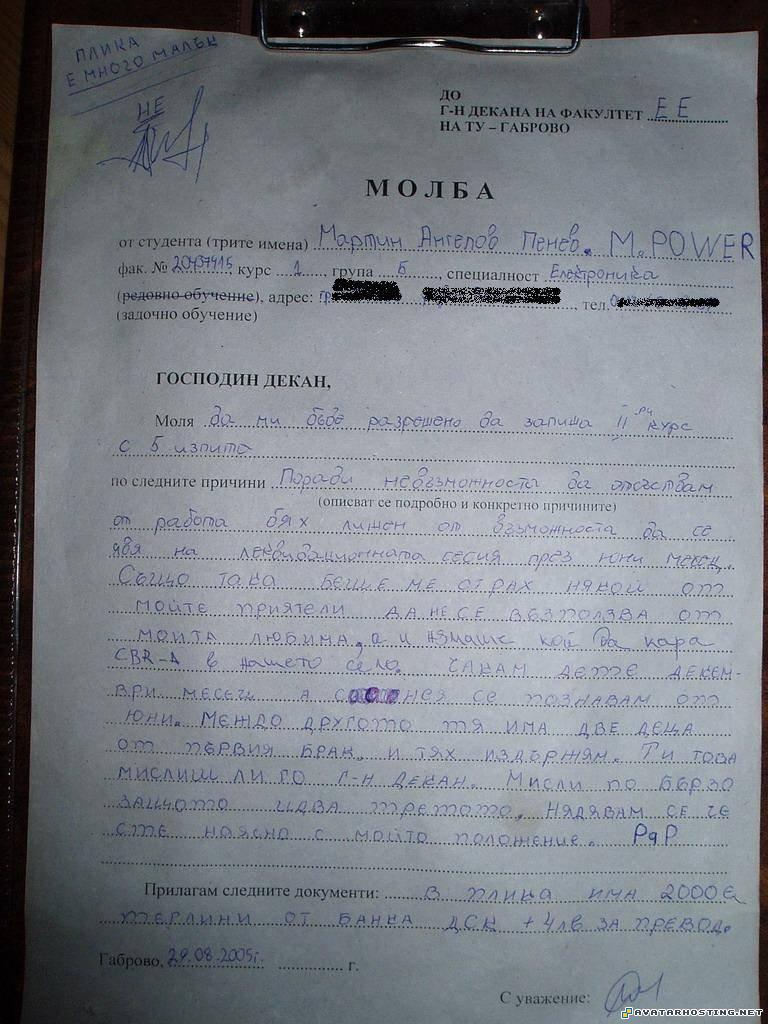 ПЛИКА
Е МНОГО МАЛЪК
НЕ
ДО
Г-Н ДЕКАНА НА ФАКУЛТЕТ ЕЕ
НА ТУ – ГАБРОВО
МОЛБА
от студента (трите имена) Мартин Ангелов Пенев. M.POWER
фак. № 20437415 курс 1, група Б, специалност Електроника
(редовно обучение), адрес: гр тел.
(задочно обучение)
ГОСПОДИН ДЕКАН,
Моля да ми бъде разрешено да запиша II ри курс
с 5 изпита
по следните причини Поради невъзможноста да отсъствам
(описват се подробно и конкретно причините)
от работа бях лишен от възможноста да се
явя на ликвидационната сесия през юни месец.
Също така беше ме страх някой от
мойте приятели да не се възползва от
моита любима, а и нямаше кой да кара
CBR-A в нашето село. Чакам дете декем-
ври месец а с нея се познавам от
юни. Междо другото тя има две деца
от първия брак, и тях издържям. Ти това
мислиш ли го г-н Декан. Мисли по бързо
защото идва третото. Нядявам се че
сте наясно с мойто положение. РдР
Прилагам следните документи: в плика има 2000 €
терлини от Банка ДСК + 4лв за превод.
Габрово, 29.08.2005г. г.
С уважение:
AVATARHOSTING.NET